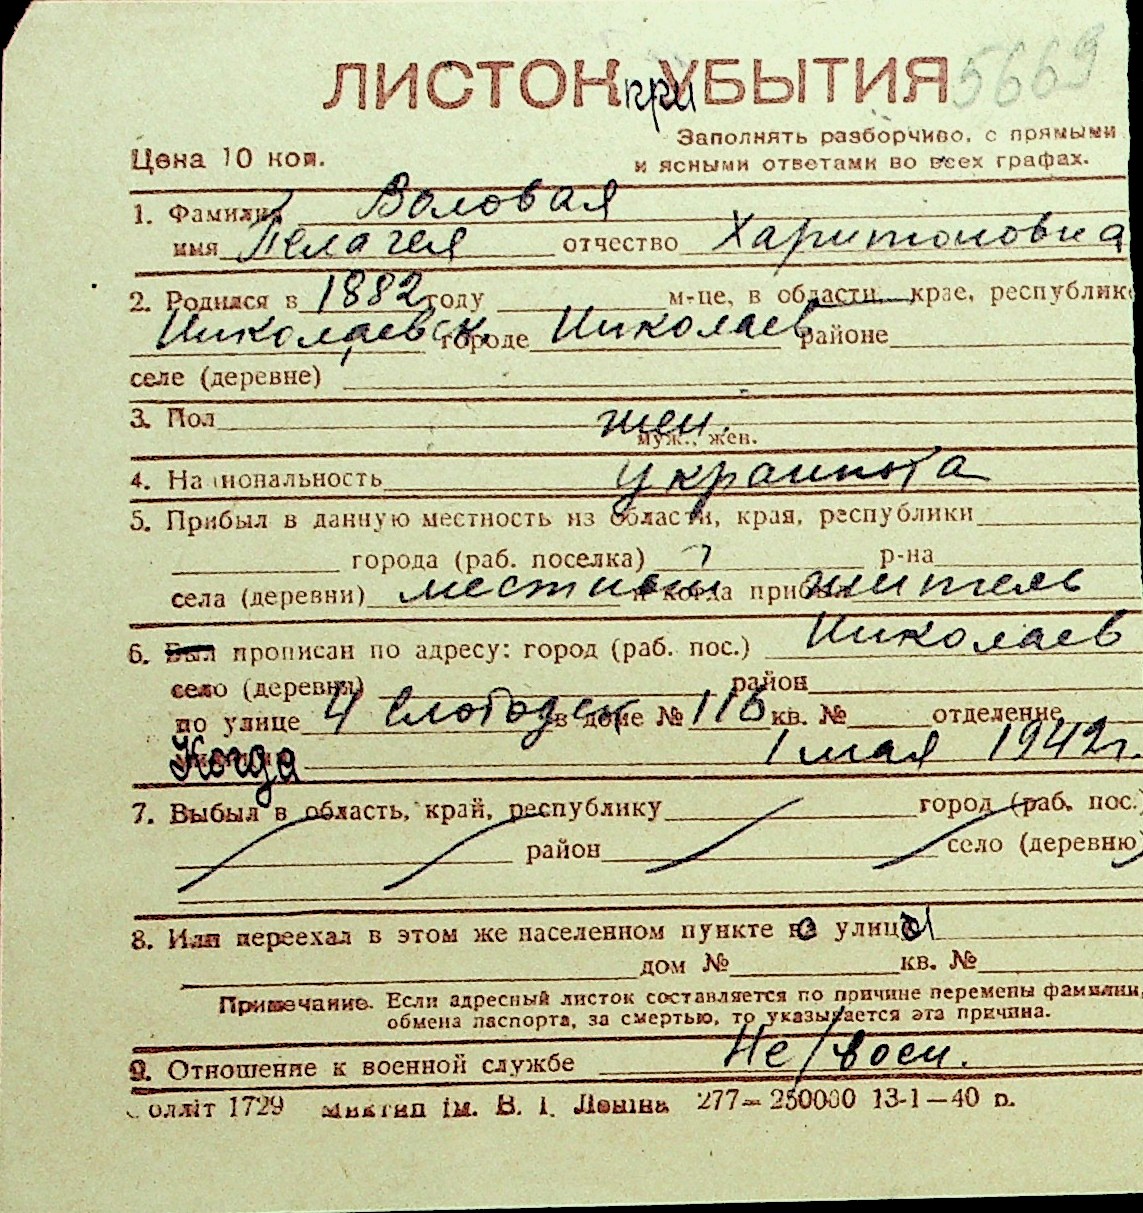 ЛИСТОК при УБЫТИЯ 5669
Заполнять разборчиво, с прямыми
Цена 10 коп. и ясными ответами во всех графах.
1. Фамилия Воловая
имя Пелагея отчество Харитоновна
2. Родился в 1882 году м-це, в области, крае, республике
Николаевск. городе Николаев районе
селе (деревне)
3. Пол жен.
муж., жен.
4. Национальность украинка
5. Прибыл в данную местность из области, края, республики
города (раб. поселка) р-на
села (деревни) местный и когда прибыл житель
6. Был прописан по адресу: город (раб. пос.) Николаев
село (деревня) район
по улице 4 Слободск в доме № 116 кв. № отделение
Когда 1 мая 1942 г.
7. Выбыл в область, край, республику город (раб. пос.)
район село (деревню)
8. Или переехал в этом же населенном пункте на улицы
дом № кв. №
Примечание. Если адресный листок составляется по причине перемены фамилии,
обмена паспорта, за смертью, то указывается эта причина.
9. Отношение к военной службе Не/воен.
олліт 1729 ім. В. І. Леніна 277—250000 13-1—40 р.